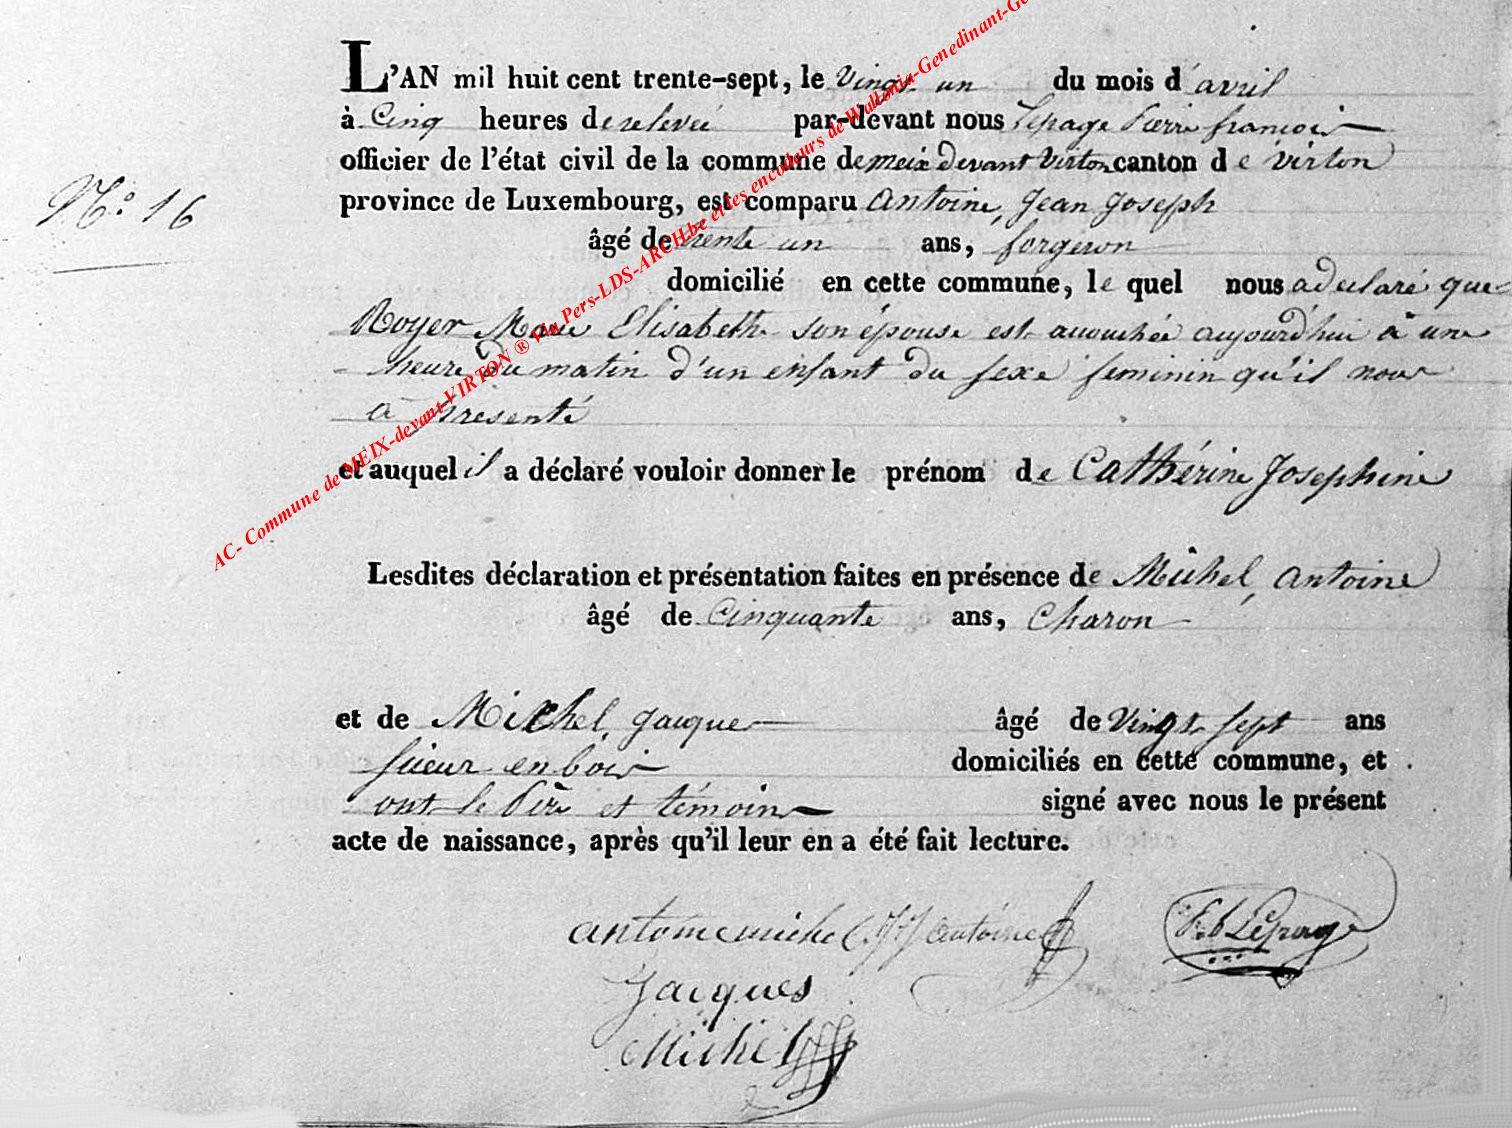 L'AN mil huit cent trente-sept, le Vingt un du mois d'avril
à Cinq heures de relevée par-devant nous Lepage Pierre françois
officier de l'état civil de la commune de meix devant Virton canton de virton
N.° 16
province de Luxembourg, est comparu Antoine, Jean Joseph
âgé de trente un ans, forgeron
domicilié en cette commune, le quel nous a déclaré que
Royer Marie Elisabeth son épouse est accouchée aujourd'hui à une
heure du matin d'un enfant du sexe feminin qu'il nous
a présenté
et auquel il a déclaré vouloir donner le prénom de Cathérine Josephine
Lesdites déclaration et présentation faites en présence de Michel, Antoine
âgé de Cinquante ans, Charon
et de Michel, Jacques âgé de Vingt sept ans
scieur en bois domiciliés en cette commune, et
ont le Père et témoins signé avec nous le présent
acte de naissance, après qu'il leur en a été fait lecture.
antoine michel JJ Antoine Lepage
Jacques
Michel
AC- Commune de MEIX-devant-VIRTON ® Via Pers-LDS-ARCH.be et les encodeurs de Wallonia-Genedinant-Ge